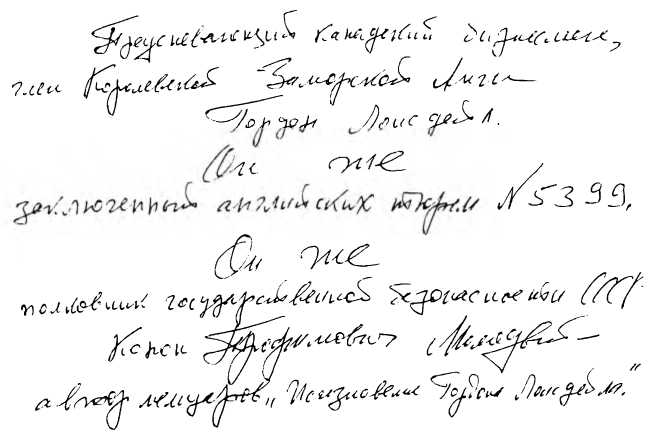 Преуспевающий канадский бизнесмен,
член Королевской Заморской Лиги
Гордон Лонсдейл.
Он же
заключенный английских тюрем N 5399.
Он же
полковник государственной безопасности СССР
Конон Трофимович Молодый –
автор мемуаров „Исповедь Гордона Лонсдейла."